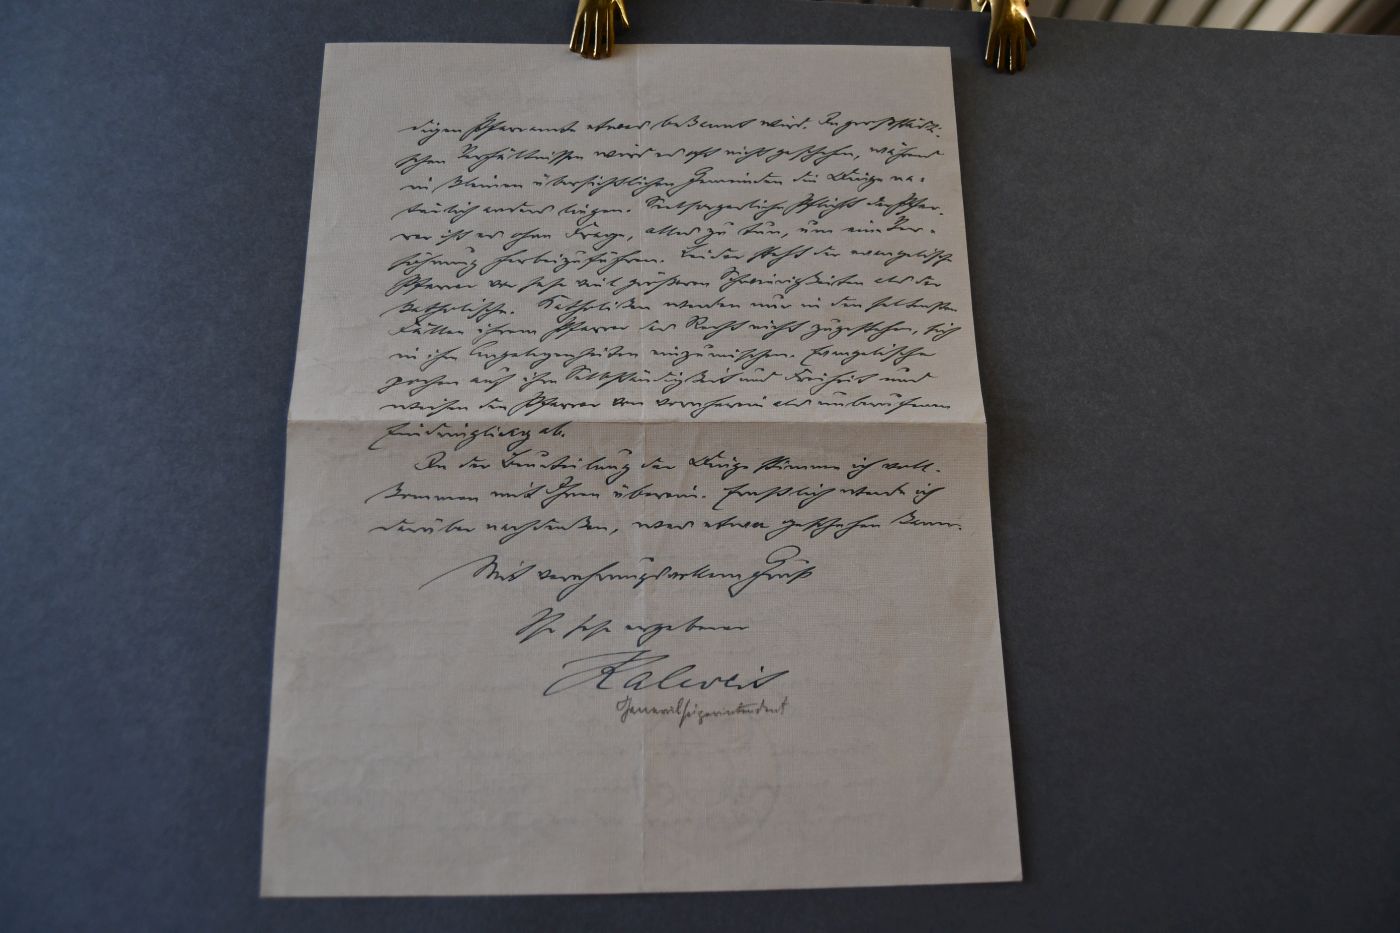 digen Pfarramte etwas bekannt wird. In großstädti-
schen Verhältnissen wird es oft nicht geschehen, während
in kleinen übersichtlichen Gemeinden die Dinge na-
türlich anders liegen. Seelsorgerliche Pflicht der Pfar-
rer ist es ohne Frage, alles zu tun, um eine Ver-
söhnung herbeizuführen. Leider steht der evangelische
Pfarrer vor sehr viel größeren Schwierigkeiten als der
katholische. Katholiken werden nur in den seltensten
Fällen ihrem Pfarrer das Recht nicht zugestehen, sich
in ihre Angelegenheiten einzumischen. Evangelische
pochen auf ihre Selbständigkeit und Freiheit und
weisen den Pfarrer von vornherein als unberufenen
Eindringling ab.
In der Beurteilung der Dinge stimme ich voll-
kommen mit Ihnen überein. Ernstlich werde ich
darüber nachdenken, was etwa geschehen kann.
Mit verehrungsvollem Gruß
Ihr sehr ergebener
Kalweit
Generalsuperintendent